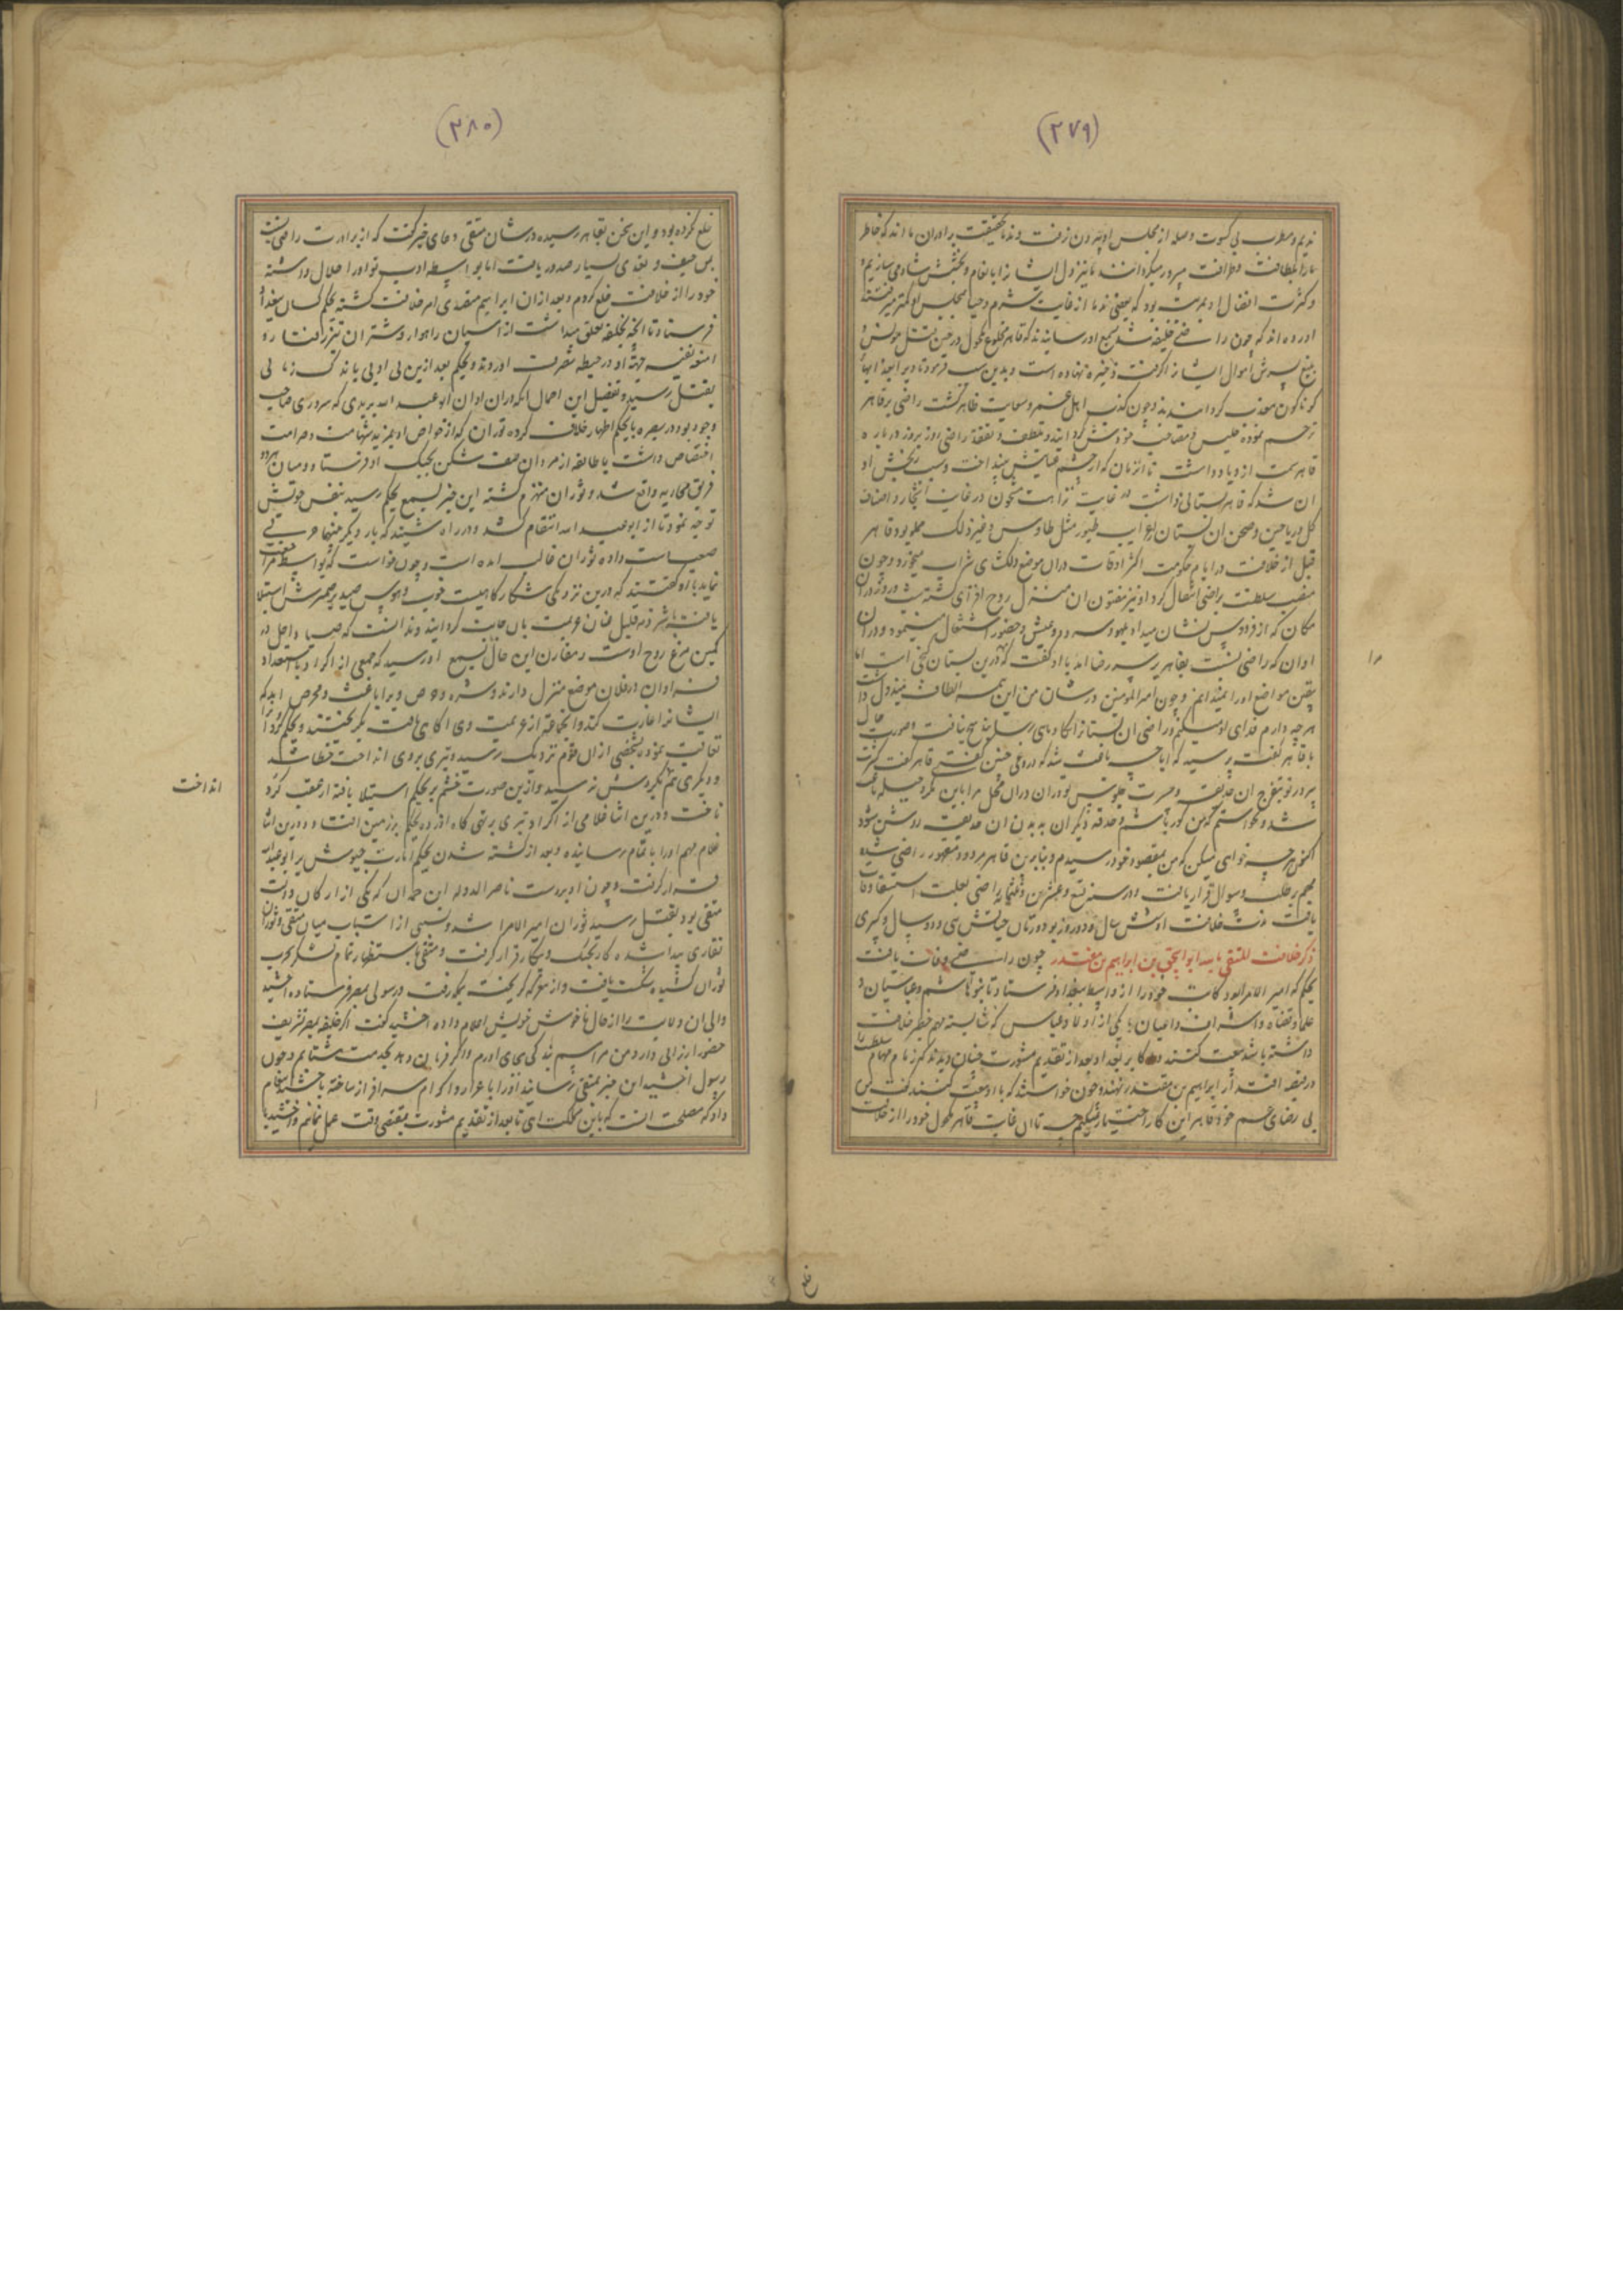 (۲۷۹)
ندیم و مطرب بی کسوت وصله از مجلس او بیرون نرفت و ندما بحقیقت برادران ما اند که خاطر
ما را بلطافت و ظرافت مسرور میگردانند ما نیز دل ایشانرا بانعام و بخشش شاد می سازیم و
و کثرت افضال او بمرتبه بود که بعضی ندما از غایت شرم و حیا بمجلس او کمتر میرفتند
اورده اند که چون راضی خلیفه شد بسمع او رسانیدند که قاهر مخلوع مکحول در حین قتل مونس و
اموال ایشانرا گرفت ذخیره نهاده است و بدین سبب فرمود تا ویرا بعذابهای
گوناگون معذب گردانیدند و چون کذب اهل غمز و سعایت ظاهر گشت راضی بر قاهر
ترحم نموده جلیس و مصاحب خودش گردانید و تلطف و تفقد راضی روز بروز در باره
قاهر سمت ازدیاد داشت تا انزمان که از چشم عنایتش بینداخت و سبب رنجش او
ان شد که قاهر بستانی داشت در غایت نزاهت مشحون در غایت اشجار و اصناف
گل و ریاحین و صحن ان بستان بغرایب طیور مثل طاوس و غیر ذلک مملو بود قاهر
قبل از خلافت در ایام حکومت اکثر اوقات دران موضع دلکشای شراب میخورد و چون
منصب سلطنت براضی انتقال کرد او نیز مفتون ان منزل روح افزای گشته شب و روز دران
مکان که از فردوس نشان میداد بلهو و عیش و حضور اشتغال مینمود و دران
اوان که راضی نسبت بقاهر بر سر رضا امد با او گفت که مرا درین بستان گنجی است اما
یقین مواضع او را نمیدانم و چون امیر المومنین در شان من این همه الطاف مبذول داشت
هر چه دارم فدای او میکنم و راضی ان بستانرا کاویده هیچ نیافت و صورت حال
با قاهر گفت پرسید که ترا چه باعث شد که دروغی چنین گفتی قاهر گفت کثرت
تفرج ان حدیقه و حسرت جلوس تو دران محل مرا باین مکر و حیله باعث
شد و نخواستم که من کور باشم و حدقه دیگران به بدن ان حدیقه روشن شود
اکنون هر چه خواهی میکن که من بمقصود خود رسیدم و بنابرین قاهر مردود و مقهور راضی شده
مهم بر طلب و سوال قرار یافت و در سنه تسع و عشرین و ثلثمایه راضی بعلت استسقا وفات
یافت مدت خلافت او شش سال و ده روز بود و زمان حیاتش سی و دو سال و کسری
ذکر خلافت المتقی بالله ابو اسحق بن ابراهیم بن مقتدر چون راضی وفات یافت
بجکم که امیر الامرا بود کاتب خود را از واسط ببغداد فرستاد تا بنو هاشم و عباسیان و
علما و قضاة و اشراف و اعیان با یکی از اولاد عباس که شایسته مهم خطیر خلافت
داشته باشد بیعت کنند و اکابر بغداد بعد از تقدیم مشورت چنان دیدند که زمام مهام سلطنت را
در قبضه اقتدار ابراهیم بن مقتدر نهند و چون خواستند که با او بیعت کنند گفت من
بی رضای عم خود قاهر این کار اختیار نمیکنم چه تا ان غایت قاهر مکحول خود را از خلافت
را
خلع
(۲۸۰)
خلع نکرده بود و این سخن بقاهر رسیده در شان متقی دعای خیر گفت که از برادرت راضی نسبت
بمن حیف و تعدی بسیار صدور یافت اما بواسطه ادب تو او را حلال داشته
خود را از خلافت خلع کردم و بعد ازان ابراهیم متصدی امر خلافت گشته بجکم کسان ببغداد
فرستاد تا انچه بخلیفه تعلق میداشت از اسپان راهوار و شتران تیز رفتار و
امتعه نفیسه جهة او در حیطه تصرف اوردند و بجکم بعد ازین بی ادبی باندک زمانی
بقتل رسید و تفصیل این اجمال انکه دران اوان ابو عبد الله بریدی که سروری صاحب
وجود بود در بصره با بجکم اظهار خلاف کرده توران که از خواص او بمزید شهامت و صرامت
اختصاص داشت با طایفه از مردان صف شکن بجنگ او فرستاد و میان هر دو
فریق محاربه واقع شد و توران منهزم گشته این خبر بسمع بجکم رسید بنفس خویش
توجه نمود تا از ابو عبد الله انتقام کشد و در راه شنید که بار دیگر
داده توران غالب امده است و چون خواست که بواسط مراجعت
نماید با او گفتند که درین نزدیکی شکارگاهیست خوب و هوس صید بر ضمیرش استیلا
یافت با شرذمه قلیل عنان عزیمت بان جانب گردانید و ندانست که صیاد اجل در
کمین مرغ روح اوست و مقارن این حال بسمع او رسید که جمعی از اکراد با استعداد
فراوان در فلان موضع منزل دارند و شره و حرص ویرا باعث و محرض امد که
ایشانرا غارت کند و انجماعة از عزیمت وی اگاهی یافت بگریختند و بجکم کردانرا
تعاقب نمود بشخصی از ان قوم نزدیک رسید و تیری بروی انداخت خطا شد
و دیگری هم بگردش نرسید و ازین صورت خشم بر بجکم استیلا یافته از عقب کرد
تاخت و درین اثنا غلامی از اکراد تیری بر تهی گاه او زده بجکم بر زمین افتاد و درین اثنا
غلام مهم او را با تمام رسانیده و بعد از کشته شدن بجکم امارت جیوش بر ابو عبد الله
قرار گرفت و چون او بر دست ناصر الدوله ابن حمدان که یکی از ارکان دولت
متقی بود بقتل رسید توران امیر الامرا شد و بسببی از اسباب میان متقی و توران
نقاری پیدا شده کار بجنگ و پیکار قرار گرفت و متقی باستظهار تمام لشکر بحرب
توران کشیده شکست یافت و از معرکه گریخت برقه رفت و رسولی بمصر فرستاده اخشید
والی ان ولایت را از حال ناخوش خویش اعلام داده اخشید گفت اگر خلیفه بمصر تشریف
حضور ارزانی دارد من مراسم بندگی بجای اورم و اگر فرمان دهد بخدمت شتابم و چون
رسول اخشید این خبر بمتقی رسانید او را باعزاز و اکرام سرافراز ساخته باخشید پیغام
داد که مصلحت انست که باین مملکت ائی تا بعد از تقدیم مشورت بمقتضی وقت عمل نمائیم و اخشید با
انداخت